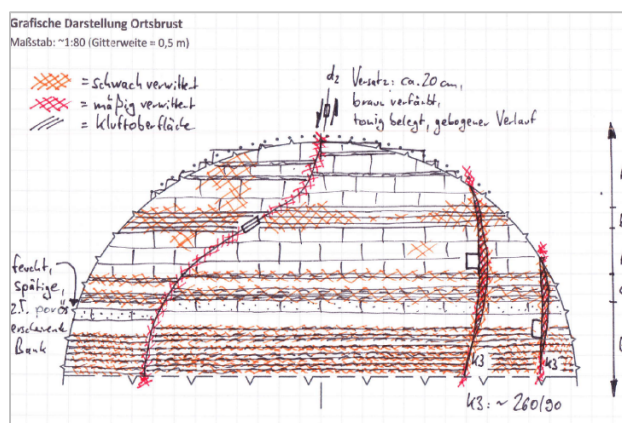 Grafische Darstellung Ortsbrust
Maßstab: ~1:80 (Gitterweite = 0,5 m)
= schwach verwittert
= mäßig verwittert
= Kluftoberfläche
d2 Versatz: ca. 20 cm,
braun verfärbt,
tonig belegt, gebogener Verlauf
feucht,
spätige,
z.T. porös
erscheinende
Bank
K3
K3
K3: ~ 260/90